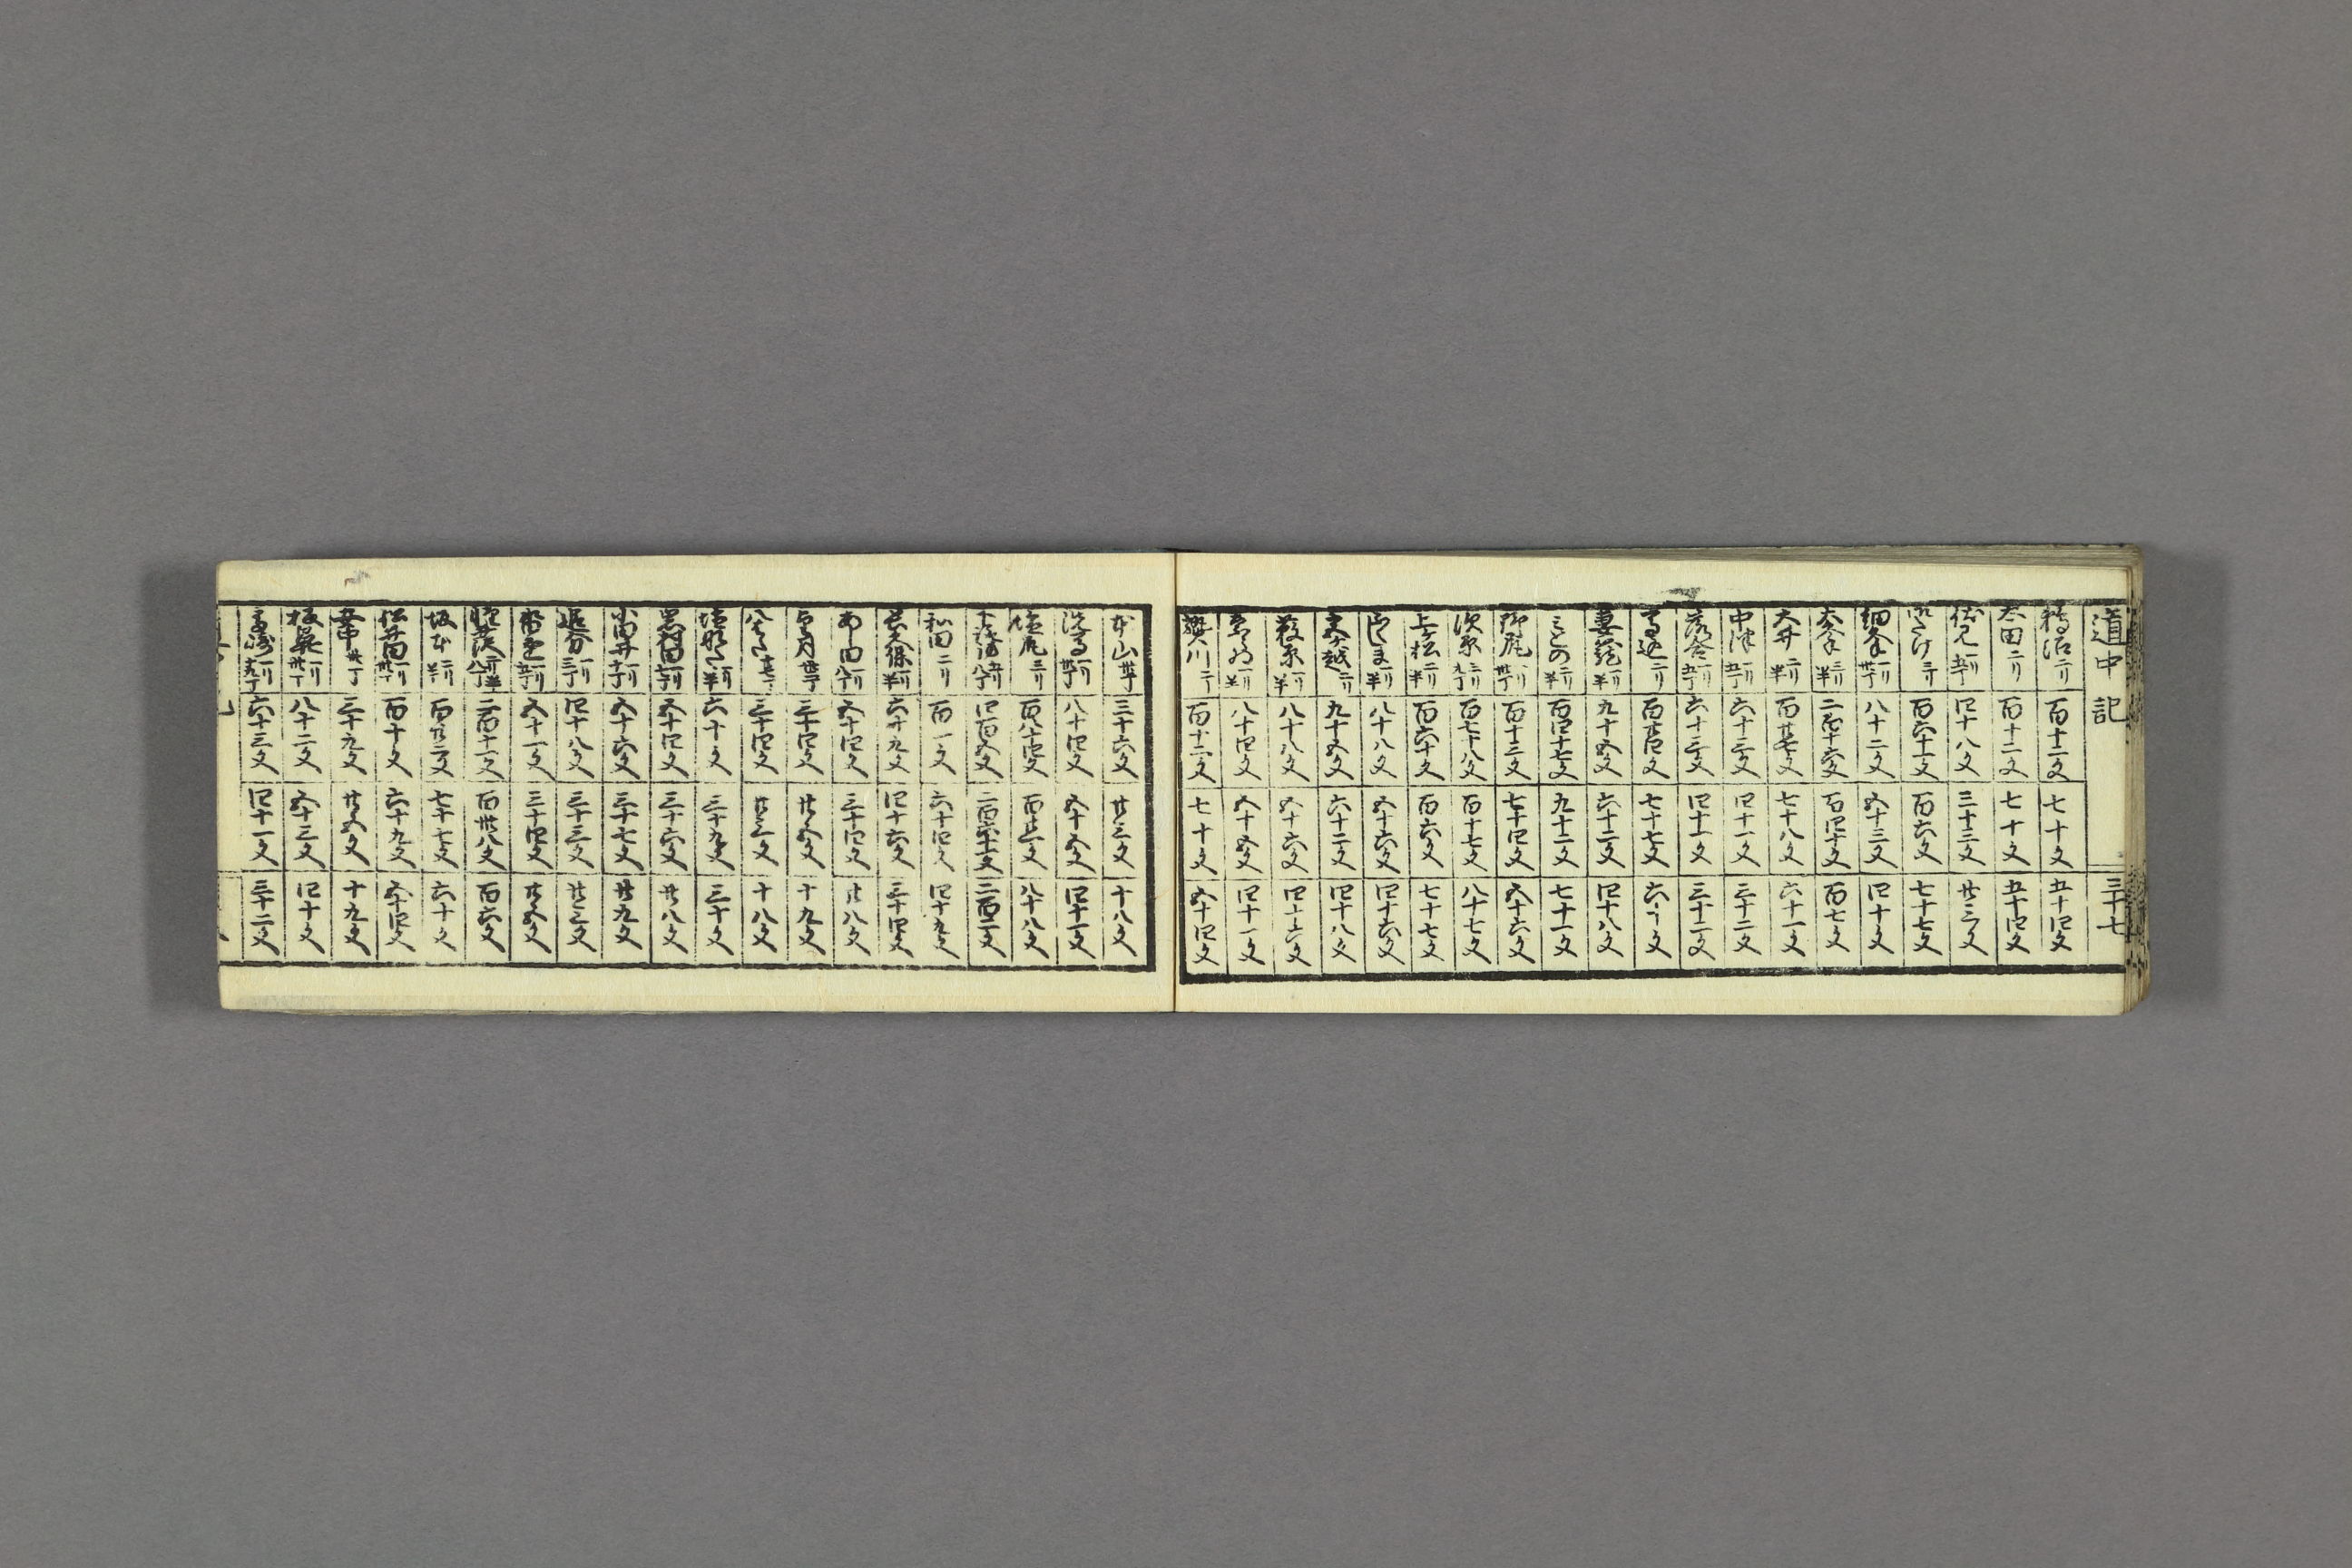 道中記　三十七
鵜沼 二リ 百十二文 七十文 五十四文
太田 二リ 百十二文 七十文 五十四文
伏見 一リ五丁 四十八文 三十三文 廿三文
みたけ 三リ 百六十一文 百六文 七十七文
細久手 一リ卅丁 八十二文 五十三文 四十文
大久手 三リ半 百四十文 百七文
大井 二リ半 百廿七文 七十八文 六十一文
中津 一リ五丁 六十三文 四十一文 三十二文
落合 一リ五丁 六十三文 四十一文 三十二文
馬込 二リ 七十七文 六十文
妻籠 一リ半 九十五文 六十二文 四十八文
みとの 二リ半 百四十七文 九十二文 七十一文
野尻 一リ卅丁 百十三文 七十四文 五十六文
須原 三リ九丁 百七十八文 百十七文 八十七文
上ヶ松 二リ半 百六十文 百六文 七十七文
ふくしま 一リ半 八十八文 五十六文 四十六文
宮ノ越 二リ 九十五文 六十二文 四十八文
藪原 一リ半 八十八文 五十六文 四十六文
奈良井 一リ半 八十四文 五十五文 四十一文
贄川 二リ 百十二文 七十文 五十四文
本山 卅丁 三十六文 廿三文 十八文
洗馬 一リ卅丁 八十四文 五十五文 四十一文
塩尻 三リ 八十八文
下諏訪 五リ八丁 四百五文
和田 二リ 百一文 六十四文 四十九文
長久保 一リ半 六十九文 四十六文 三十四文
あし田 一リ八丁 五十四文 三十四文 廿八文
もち月 卅丁 三十四文 廿五文 十九文
八はた 三十四文 廿三文 十八文
塩なた 一リ半 六十文 三十九文 三十文
岩村田 一リ七丁 五十四文 三十六文 廿八文
小田井 一リ十丁 五十六文 三十七文 廿九文
追分 一リ三丁 四十八文 三十三文 廿三文
沓掛 一リ五丁 五十一文 三十四文 廿五文
軽井沢 二リ半八丁 二百十一文 百卅八文 百六文
坂本 二リ半 百廿二文 七十七文 六十文
松井田 一リ卅丁 百十文 六十九文 五十四文
安中 卅丁 三十九文 廿五文 十九文
板鼻 一リ卅丁 八十二文 五十三文 四十文
高崎 一リ十九丁 六十三文 四十一文 三十二文